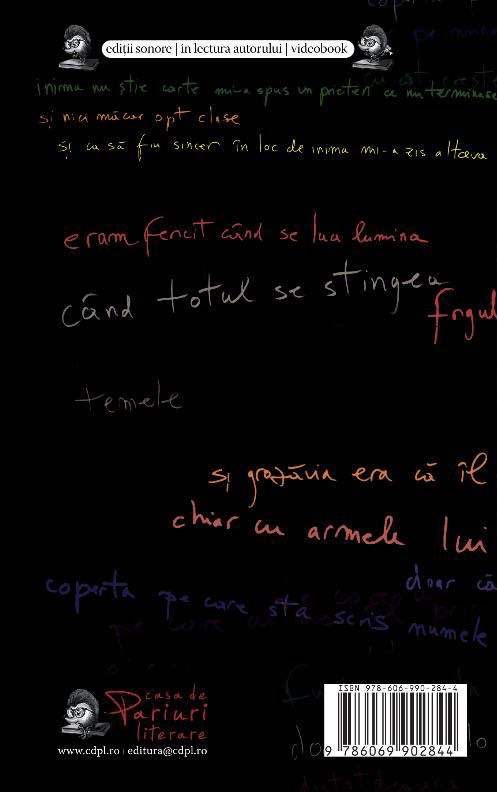 coperta p
pe nume
ediții sonore | în lectura autorului | videobook
inima nu știe carte mi-a spus un prieten ce nu terminase
și nici măcar opt clase
și ca să fiu sincer în loc de inima mi-a zis altceva
eram fericit când se lua lumina
când totul se stingea
frigul
temele
și grozăvia era că îl
chiar cu armele lui
doar că
coperta pe care stă scris numele
pe care
ISBN 978-606-990-284-4
casa de
Pariuri
literare
www.cdpl.ro | editura@cdpl.ro
9 786069 902844